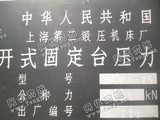 中华人民共和国
上海第二锻压机床厂
开式固定台压力
型号
公称力 kN
出厂编号